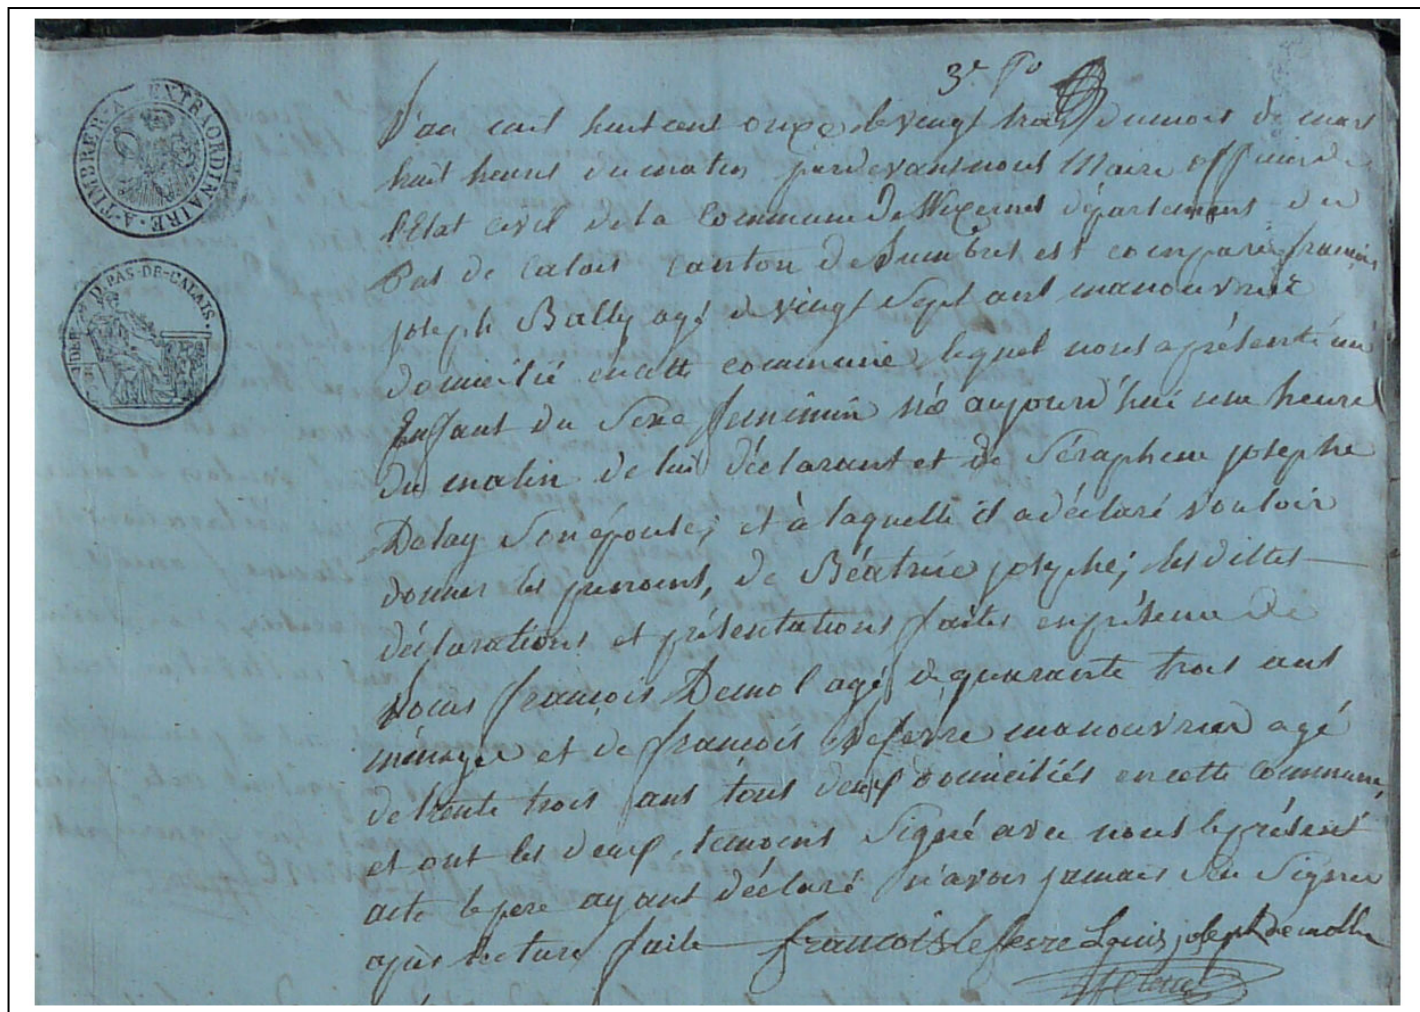 A TIMBRER A L'EXTRAORDINAIRE
DEP. D. PAS-DE-CALAIS.
3e fo
L'an mil huit cent onze le vingt trois du mois de mars
huit heures du matin pardevant nous Maire officier de
l'Etat civil de la Commune de Wizernes département du
Pas de Calais canton de Lumbres est comparu françois
joseph Bally agé de vingt sept ans manouvrier
domicilié en cette commune lequel nous a présenté un
Enfant du Sexe feminin né aujourd'hui une heure
du matin de lui déclarant et de Séraphine josephe
Delay son épouse, et à laquelle il a déclaré vouloir
donner les prenoms, de Béatrice josephe; les dittes
déclarations et présentations faites en présence de
Louis françois Demol agé de quarante trois ans
ménager et de françois Lefevre manouvrier agé
de trente trois ans tous deux domiciliés en cette commune,
et ont les deux temoins Signé avec nous le présent
acte le père ayant déclaré n'avoir jamais Su Signer
après lecture faite françois lefevre Louis joseph demolle